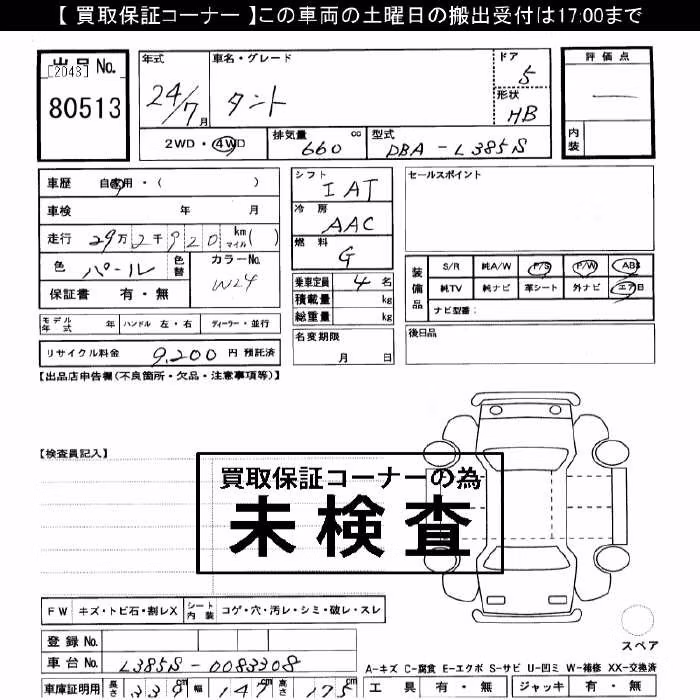 【 買取保証コーナー 】この車両の土曜日の搬出受付は17:00まで
出品 No.
[2043]
80513
年式
24/7月
車名・グレード
タント
ドア
5
形状
HB
評価点
―
内装
2WD・4WD
排気量 660 cc
型式 DBA-L385S
車歴 自家用・( )
車検 年 月
走行 29万2千920 km マイル( )
色 パール
色替
カラーNo. W24
保証書 有・無
シフト IAT
冷房 AAC
燃料 G
乗車定員 4 名
積載量 kg
総重量 kg
セールスポイント
装備品
S/R 純A/W P/S P/W ABS
純TV 純ナビ 革シート 外ナビ エアB
ナビ型番:
モデル年式 年 ハンドル 左・右 ディーラー・並行
リサイクル料金 9,200 円 預託済
名変期限
月 日
後日品
【出品店申告欄(不良箇所・欠品・注意事項等)】
【検査員記入】
買取保証コーナーの為
未検査
FW キズ・トビ石・割レX
シート内装 コゲ・穴・汚レ・シミ・破レ・スレ
登録 No.
車台 No. L385S-0083308
スペア
A-キズ C-腐食 E-エクボ S-サビ U-凹ミ W-補修 XX-交換済
車庫証明用 長さ 339 cm 幅 147 cm 高さ 175 cm
工具 有・無 ジャッキ 有・無